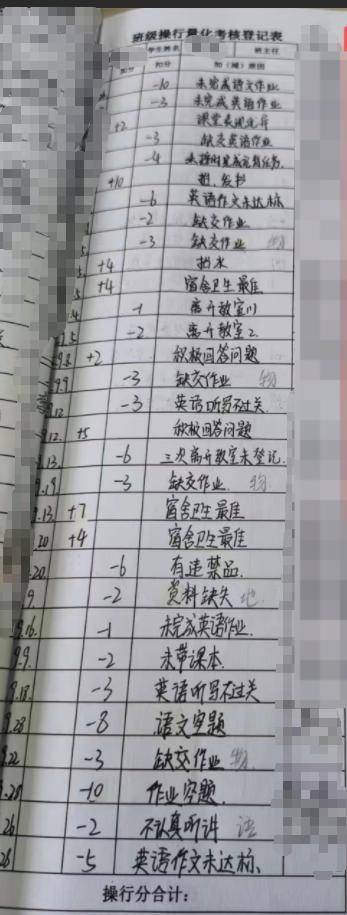 班级操行量化考核登记表
学生姓名 班主任
加分 扣分 加（减）原因
-10 未完成语文作业
-3 未完成英语作业
+2 课堂表现优异
-3 缺交英语作业
-4 未按时完成元旦任务.
+10 担、发书
-6 英语作文未达标
-2 缺交作业
-3 缺交作业 物
+4 抬水
+4 宿舍卫生最佳
-1 离开教室1
-2 离开教室2.
9.8 +2 积极回答问题
9.9 -3 缺交作业 物
9.12 -3 英语听写不过关.
9.12. +5 积极回答问题
.13. -6 三次离开教室未登记.
9.19 -3 缺交作业. 物.
9.13. +7 宿舍卫生最佳
.20 +4 宿舍卫生最佳
.20. -6 有违禁品.
9. -2 资料缺失 地.
9.16. -1 未完成英语作业.
9.9. -2 未带课本.
9.18. -3 英语听写不过关
9.28 -8 语文空题
9.22 -3 缺交作业 物.
.28 -10 作业空题.
26 -2 不认真听讲 语
28 -5 英语作文未达标.
操行分合计：